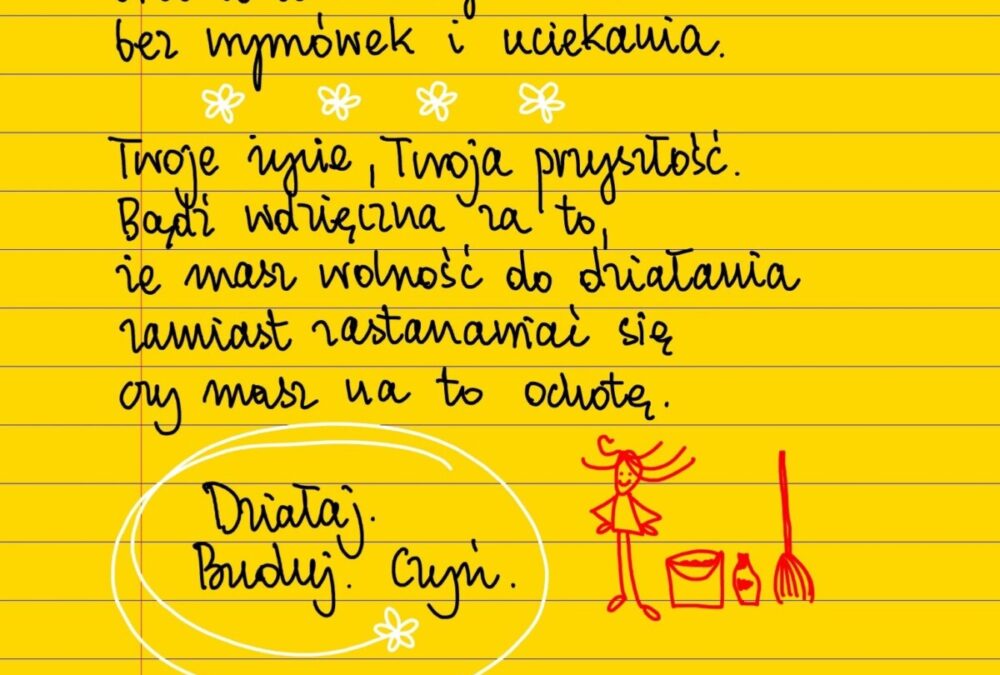 bez wymówek i uciekania.
Twoje życie, Twoja przyszłość.
Bądź wdzięczna za to,
że masz wolność do działania
zamiast zastanawiać się
czy masz na to ochotę.
Działaj.
Buduj. Czyń.